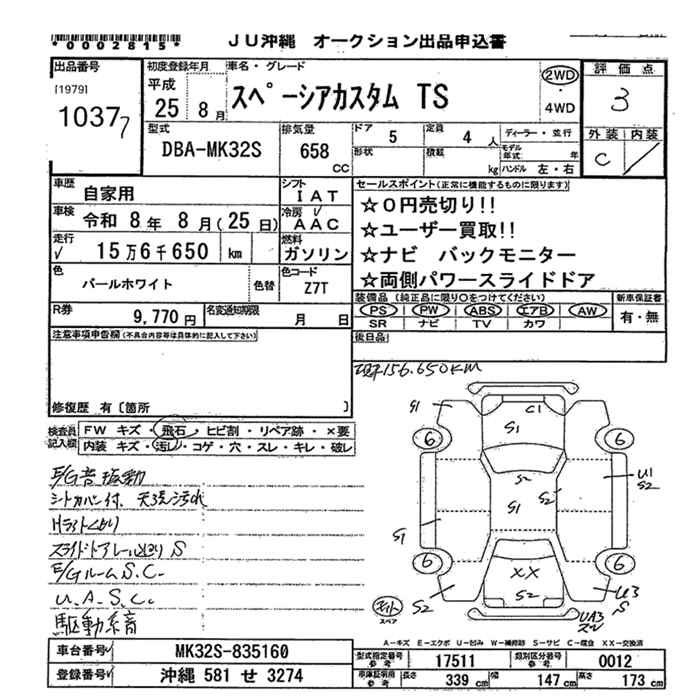 *0002815*
JU沖縄 オークション出品申込書
出品番号
[1979]
10377
初度登録年月
平成
25 8月
車名・グレード
スペーシアカスタム TS
2WD
・
4WD
評価点
3
外装 内装
C
型式
DBA-MK32S
排気量
658
CC
ドア 5
定員 4 人
形状
積載 kg
ディーラー・並行
モデル年式 年
ハンドル 左・右
車歴
自家用
シフト
IAT
車検
令和 8年 8月(25日)
冷房
AAC
走行
15万6千650 km
燃料
ガソリン
色
パールホワイト
色替
色コード
Z7T
R券
9,770円
名変通知期限
月 日
セールスポイント(正常に機能するものに限ります)
☆0円売切り!!
☆ユーザー買取!!
☆ナビ バックモニター
☆両側パワースライドドア
装備品 (純正品に限り○をつけてください)
PS PW ABS エアB AW
SR ナビ TV カワ
新車保証書
有・無
後日品
注意事項申告欄(不具合内容等は具体的に記入して下さい)
修復歴 有 [箇所 ]
156.650KM
検査員記入欄
FW キズ・飛石・ヒビ割・リペア跡・×要
内装 キズ・汚レ・コゲ・穴・スレ・キレ・破レ
E/G音振動
シートカバー付、天張汚れ
Hライトくもり
スライドドアレール凹 S
E/GルームS.C.
U.A.S.C.
駆動系音
G1
C1
S1
6
6
S2
S1
S2
U1
S2
S1
6
6
XX
S2
S2
U3
S
UA3
スペア
A-キズ E-エクボ U-凹み W-補修跡 S-サビ C-腐食 XX-交換済
車台番号
MK32S-835160
登録番号
沖縄 581 せ 3274
型式指定番号
参考
17511
類別区分番号
参考
0012
車庫証明用
参考
長さ
339 cm
幅
147 cm
高さ
173 cm